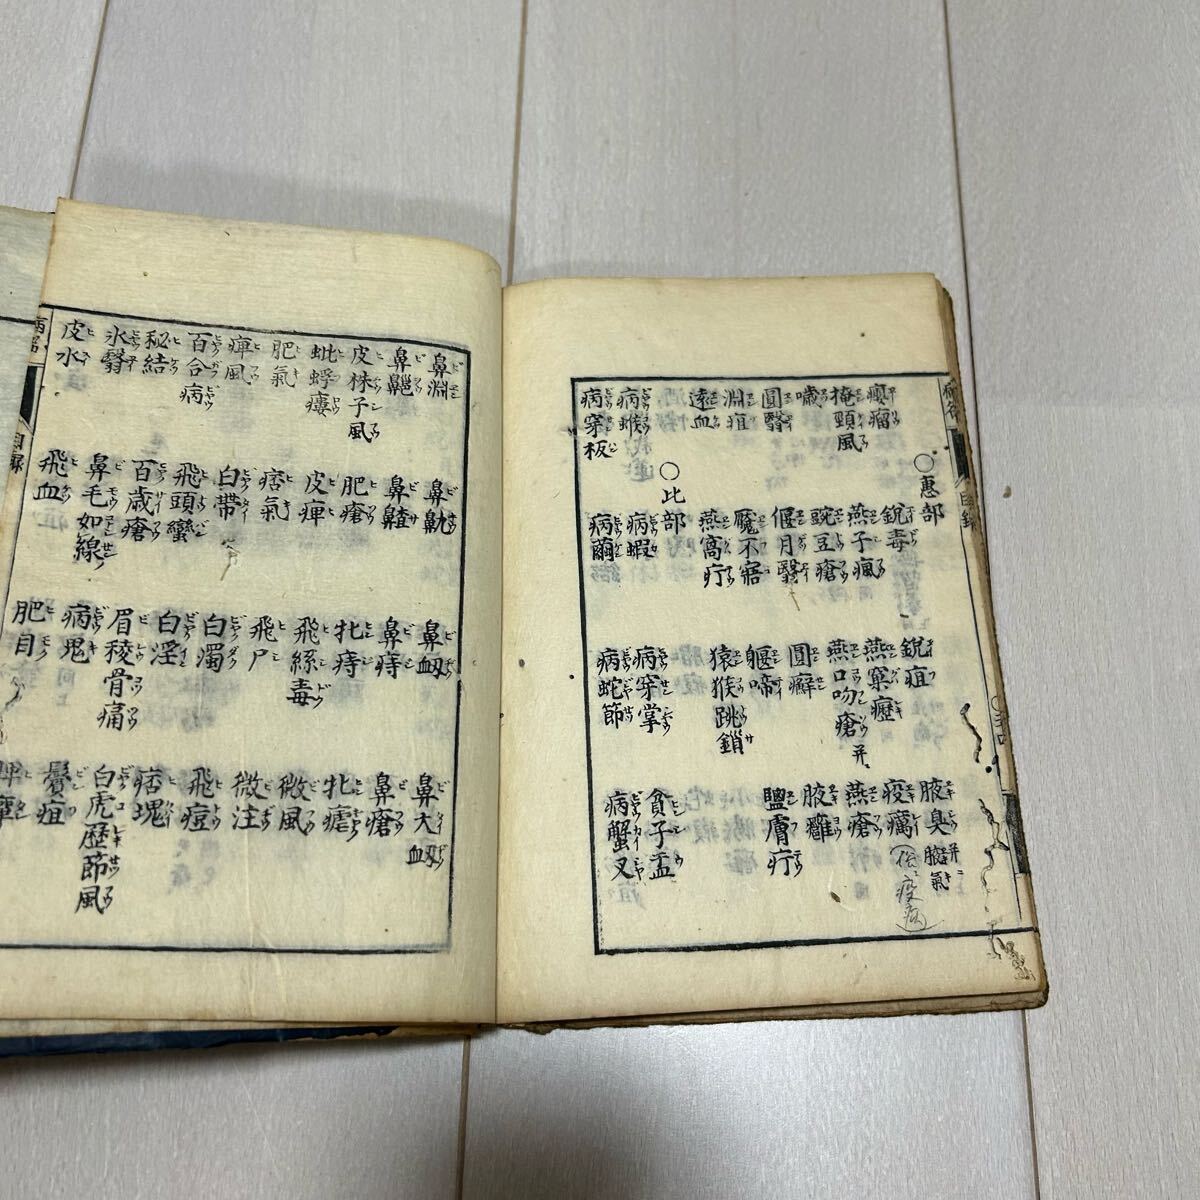 目録
癭瘤
○惠部
銳毒
銳疽
腋臭
掩頸風
燕子瘋
燕窠癧
疫癘
噦
豌豆瘡
燕口吻瘡
燕瘡
圓翳
偃月翳
圓癬
腋癰
淵疽
魘不寤
躽啼
鹽膚疔
遠血
燕窩疔
猿猴跳鎖
○比部
病蝦
病穿掌
貧子盂
病穿板
病繭
病蛇節
病蟹叉
鼻淵
鼻鼽
鼻衄
鼻大衄
鼻齆
鼻齄
鼻痔
鼻瘡
皮株子風
肥瘡
牝痔
牝瘧
蚍蜉瘻
皮痺
飛絲毒
微風
肥氣
痞氣
飛尸
微注
痺風
白帶
白濁
飛痘
百合病
飛頭蠻
白淫
痞塊
秘結
百歳瘡
眉稜骨痛
白虎歷節風
氷翳
鼻毛如線
病鬼
鬢疽
皮水
飛血
肥目